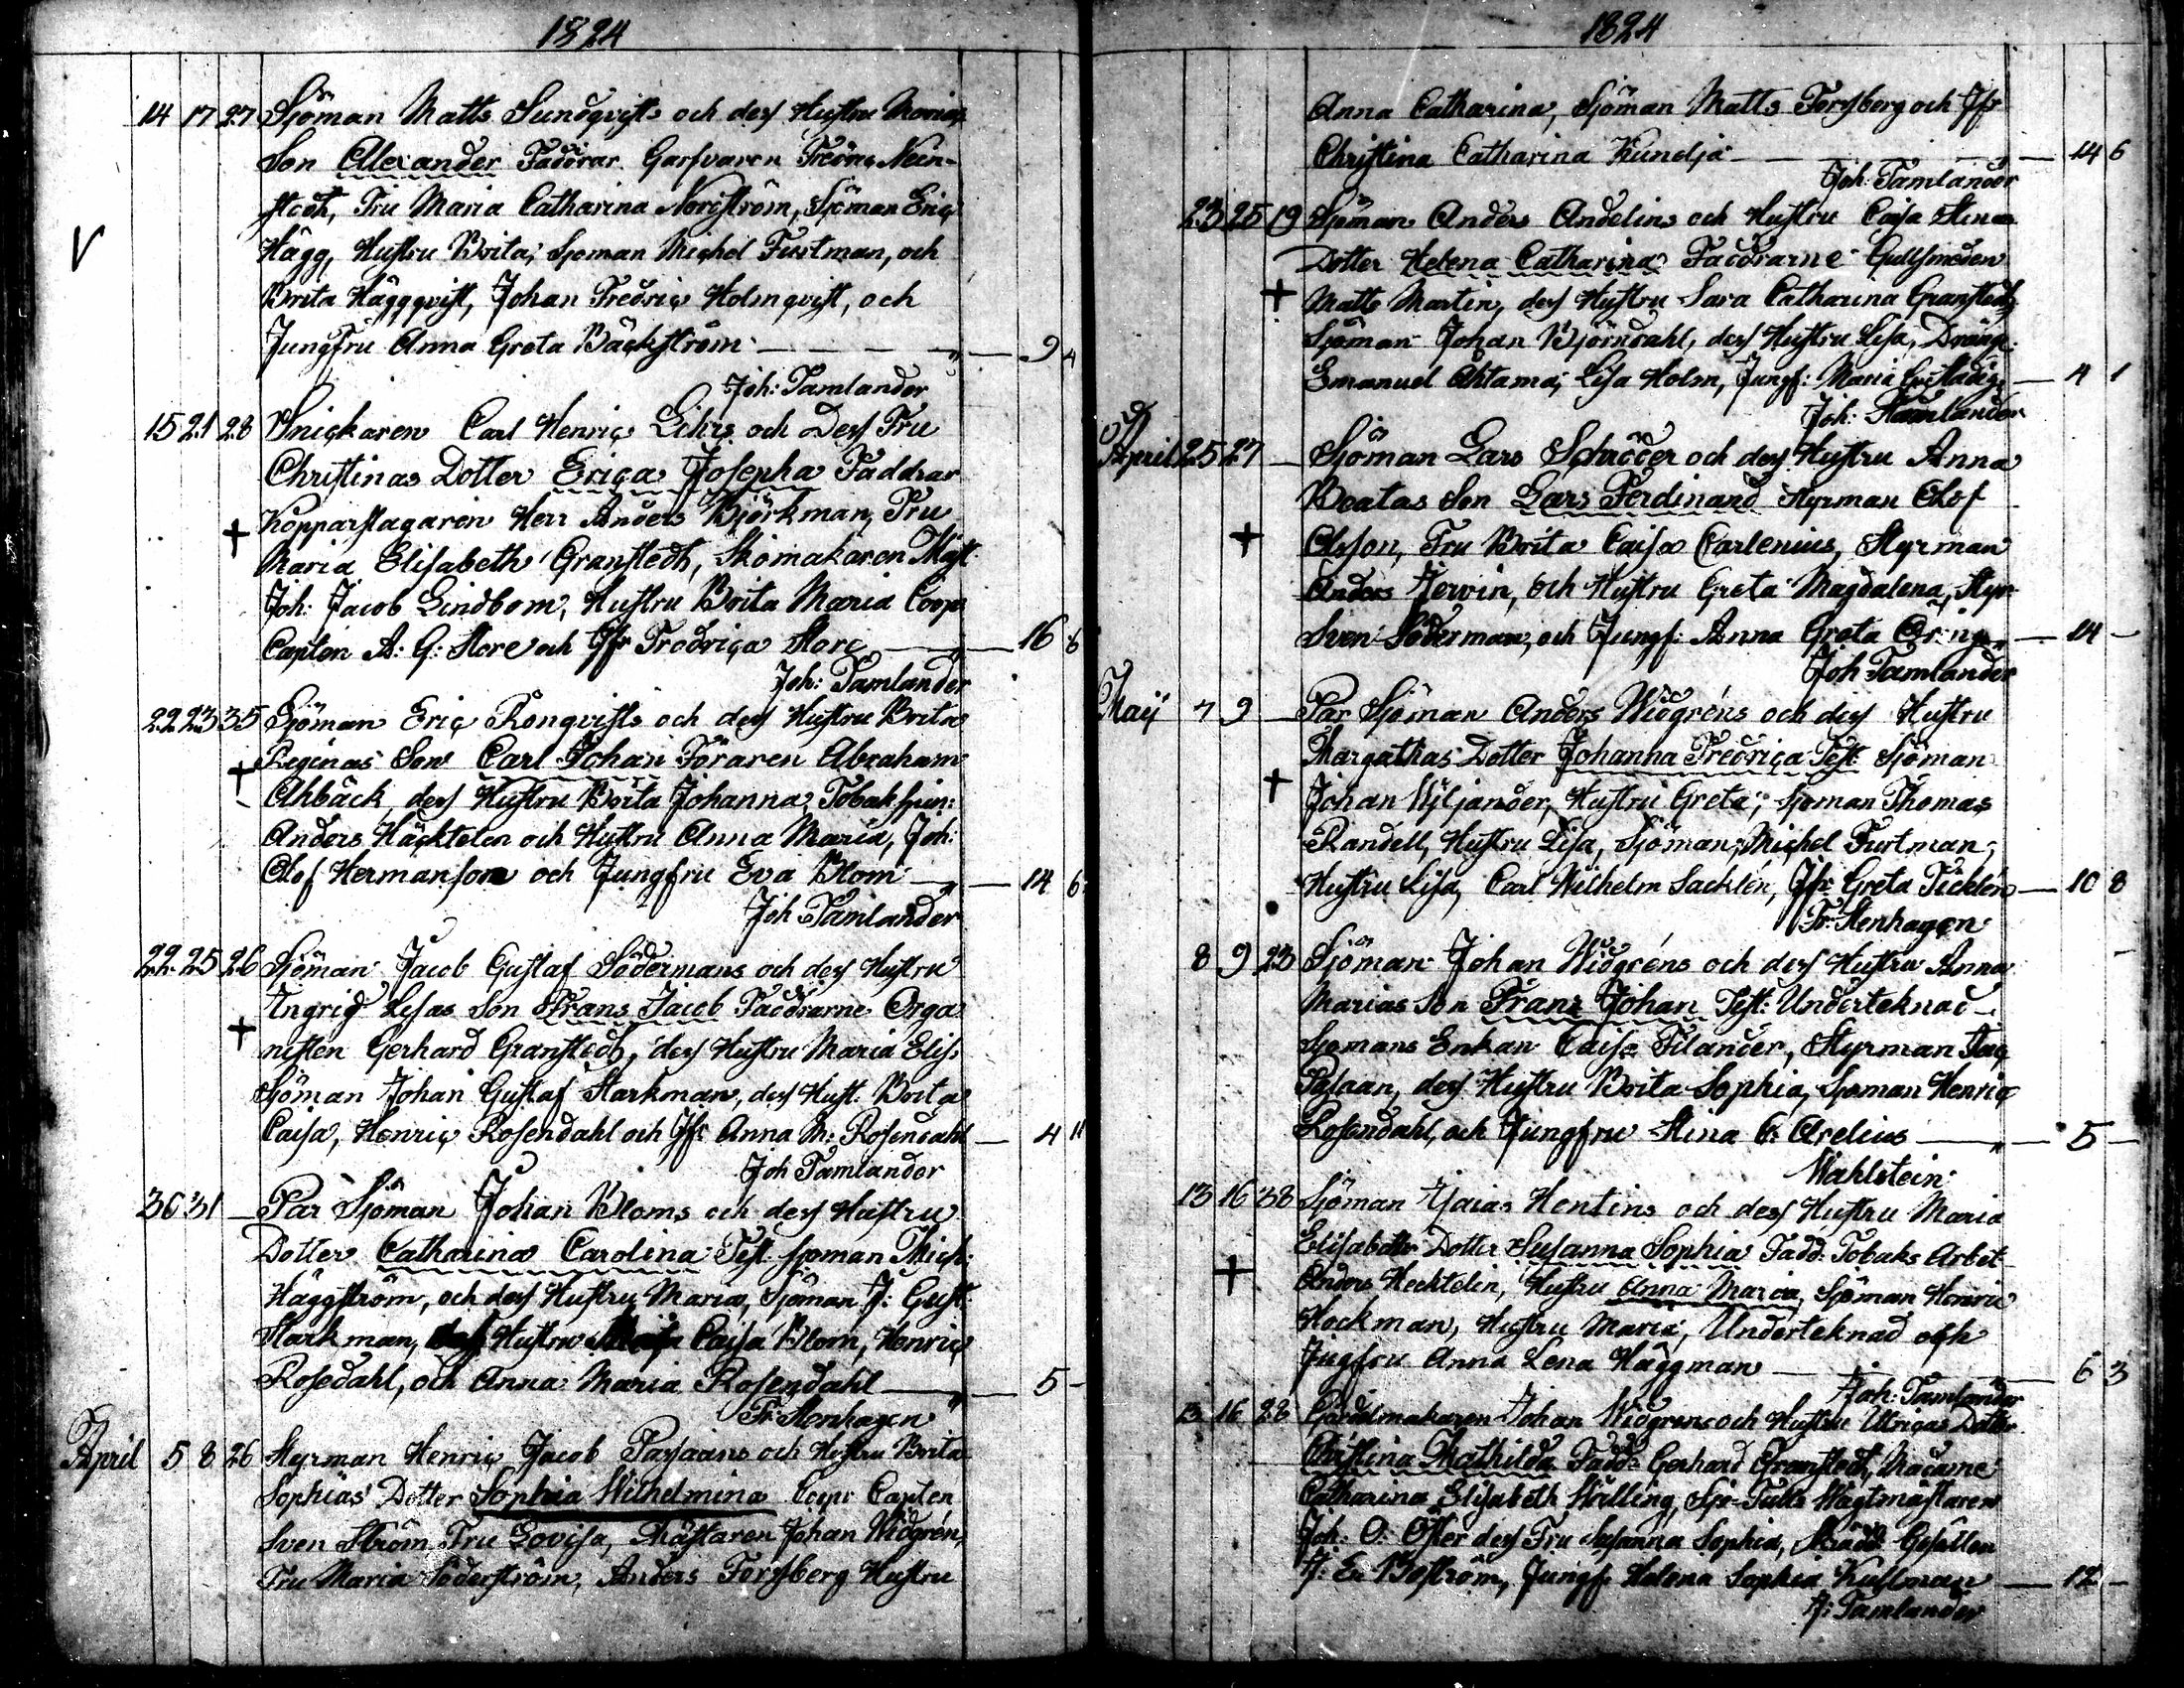 1824
14 17 27 Sjöman Matts Sundqvists och dess Hustru Marias
Son Alexander Faddrar Garfvaren Fredric Neen-
stedt, Fru Maria Catharina Nordström, Sjöman Eric
Hägg, Hustru Brita, Sjoman Michel Furtman, och
Brita Häggqvist, Johan Fredric Holmqvist, och
Jungfru Anna Greta Bäckström — 9 4
Joh: Tamlander
15 21 28 Snickaren Carl Henric Lihrs och Dess Fru
Christinas Dotter Erica Josepha Faddrar
Kopparslagaren Herr Anders Björkman, Fru
Maria Elisabeth Granstedt, Skomakaren Mäst
Joh: Jacob Lindbom, Hustru Brita Maria Coop
Capten A: G: Store och Jfr Fredrica Store — 16 6
Joh: Tamlander
22 23 35 Sjöman Eric Ronqvists och dess Hustru Brita
Reginas Son Carl Johan Föraren Abraham
Ahlbäck, dess Hustru Brita Johanna, Tobakspin:
Anders Häcktelen och Hustru Anna Maria, Joh:
Olof Hermanson och Jungfru Eva Blom — 14 6
Joh Tamlander
22 25 26 Sjöman Jacob Gustaf Södermans och dess Hustru
Ingrid Lisas Son Frans Jacob Faddrarne Orga
nisten Gerhard Granstedt, dess Hustru Maria Elis:
Sjöman Johan Gustaf Starkman, dess Hust: Brita
Caisa, Henric Rosendahl och Jfr Anna M: Rosendahl — 4 11
Joh Tamlander
30 31 — Par Sjöman Johan Bloms och dess Hustru
Dotter Catharina Carolina Test. Sjoman Mich:
Häggström, och dess Hustru Maria, Sjöman J: Gust:
Starkman, Hustru Caisa Blom, Henric
Rosedahl, och Anna Maria Rosendahl — 5 -
Fr: Stenhagen
April 5 8 26 Styrman Henric Jacob Passaans och Hustru Brita
Sophias Dotter Sophia Wilhelmina Coop: Capten
Sven Ström Fru Lovisa, Mästaren Johan Widgrén,
Fru Maria Söderström, Anders Forssberg Hustru
1824
Anna Catharina, Sjöman Matts Forssberg och Jfr
Christina Catharina Kundja — 14 6
Joh: Tamlander
23 25 19 Sjöman Anders Andelins och Hustru Caisa Stinas
Dotter Helena Catharina Faddrarne Gullsmeden
Matts Martin, dess Hustru Sara Catharina Granstedt,
Sjöman Johan Björndahl, dess Hustru Lisa, Dräng
Emanuel Ahtama, Lisa Holm, Jungf: Maria — 4 1
Joh: Tamlander
April 25 27 — Sjöman Lars Schröder och dess Hustru Anna
Beatas Son Lars Ferdinand Styrman Olof
Olsson, Fru Brita Caisa Carlenius, Styrman
Anders Jervin, och Hustru Greta Magdalena, Styr
Sven Söderman, och Jungf: Anna Greta — 14 -
Joh Tamlander
Maij 7 9 — Par Sjöman Anders Widgréns och dess Hustru
Margathas Dotter Johanna Fredrica Test Sjöman
Johan Wiljander, Hustru Greta, Sjoman Thomas
Randell, Hustru Lisa, Sjöman Michel Furtman,
Hustru Lisa, Carl Wilhelm Sacklén, Jfr: Greta Ticklén — 10 8
Fr: Stenhagen
8 9 23 Sjöman Johan Widgréns och dess Hustru Anna
Marias Son Franz Johan Test: Underteknad
Sjomans Enkan Caisa Filander, Styrman Jac
Passaan, dess Hustru Brita Sophia, Sjoman Henric
Rosendahl, och Jungfru Stina C: Arelius — 5 -
Wahlstein
13 16 38 Sjöman Esaias Hentins och dess Hustru Maria
Elisabeths Dotter Susanna Sophia Fadd: Tobaks Arbet
Anders Hecktelin, Hustru Anna Maria, Sjöman Henric
Hockman, Hustru Maria, Underteknad och
Jugfru Anna Lena Häggman — 6 3
Joh: Tamlander
13 16 28 Gördelmakaren Johan Widgrens och Hustru Ulricas Dotter
Christina Mathilda Fadd: Gerhard Granstedt, Madame
Catharina Elisabeth Wälling, Sjö-Tulls Wagtmästaren
Joh: O: Öster dess Fru Susanna Sophia, Skrädd: Gesällen
A: E: Boström, Jungf: Helena Sophia Kullman — 12 -
J: Tamlander